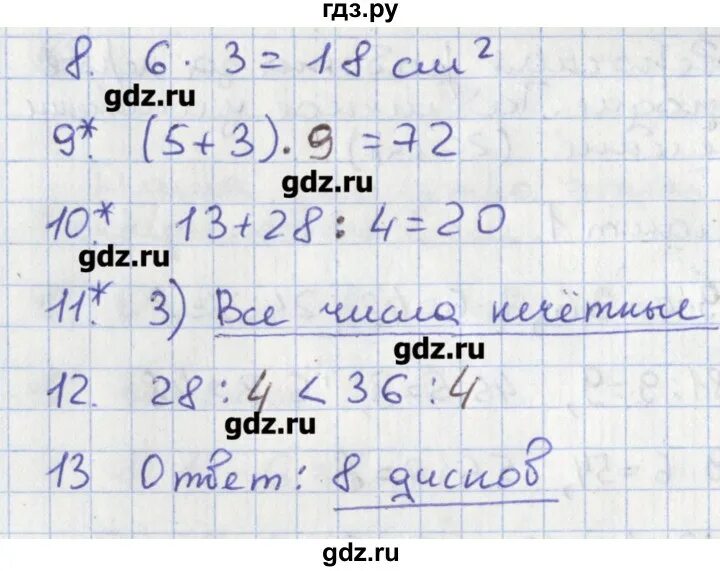 гдз.ру
8. 6 · 3 = 18 см²
gdz.ru
9*. (5+3) · 9 = 72
gdz.ru
10*. 13+28 : 4 = 20
gdz.ru
11*. 3) Все числа нечётные
gdz.ru
12. 28 : 4 < 36 : 4
gdz.ru
13 Ответ: 8 дисков
gdz.ru